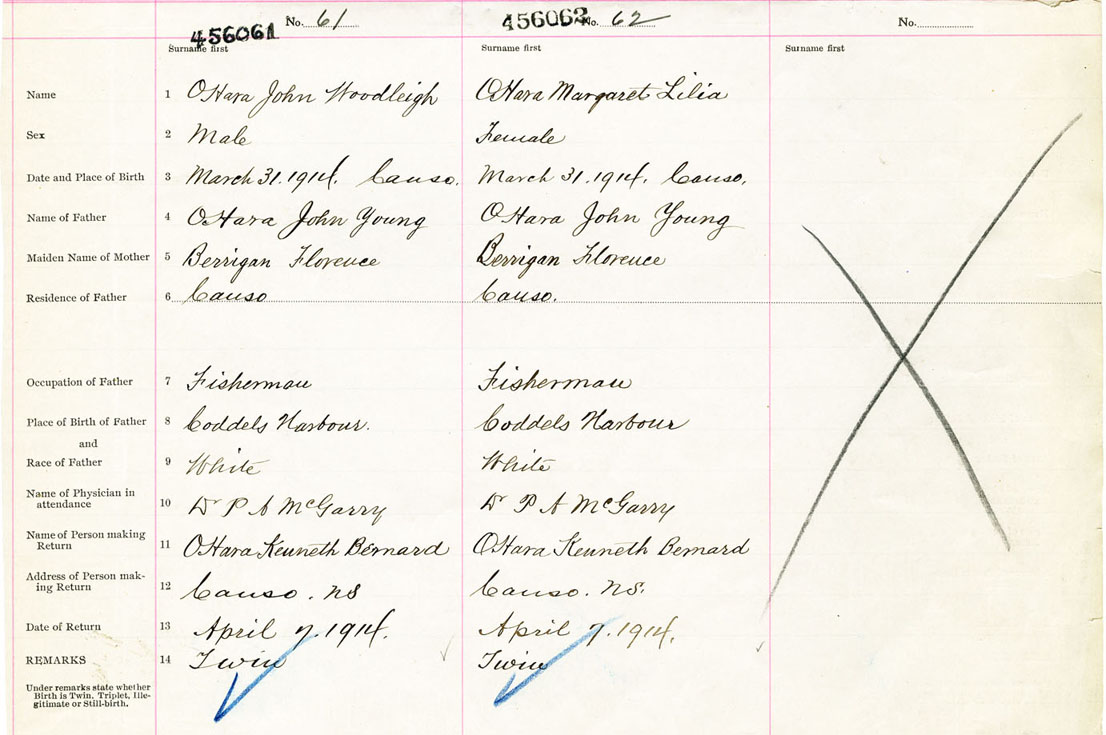 No. 61 456062 No. 62 No.
456061
Surname first Surname first Surname first
Name 1 OHara John Woodleigh OHara Margaret Lilia
Sex 2 Male Female
Date and Place of Birth 3 March 31. 1914. Canso. March 31. 1914. Canso.
Name of Father 4 OHara John Young OHara John Young
Maiden Name of Mother 5 Berrigan Florence Berrigan Florence
Residence of Father 6 Canso Canso.
Occupation of Father 7 Fisherman Fisherman
Place of Birth of Father 8 Coddels Harbour. Coddels Harbour
and
Race of Father 9 White White
Name of Physician in
attendance 10 Dr P A McGarry Dr P A McGarry
Name of Person making
Return 11 OHara Kenneth Bernard OHara Kenneth Bernard
Address of Person mak-
ing Return 12 Canso. NS Canso. NS.
Date of Return 13 April 7. 1914. April 7. 1914.
REMARKS 14 Twin Twin
Under remarks state whether
Birth is Twin, Triplet, Ille-
gitimate or Still-birth.